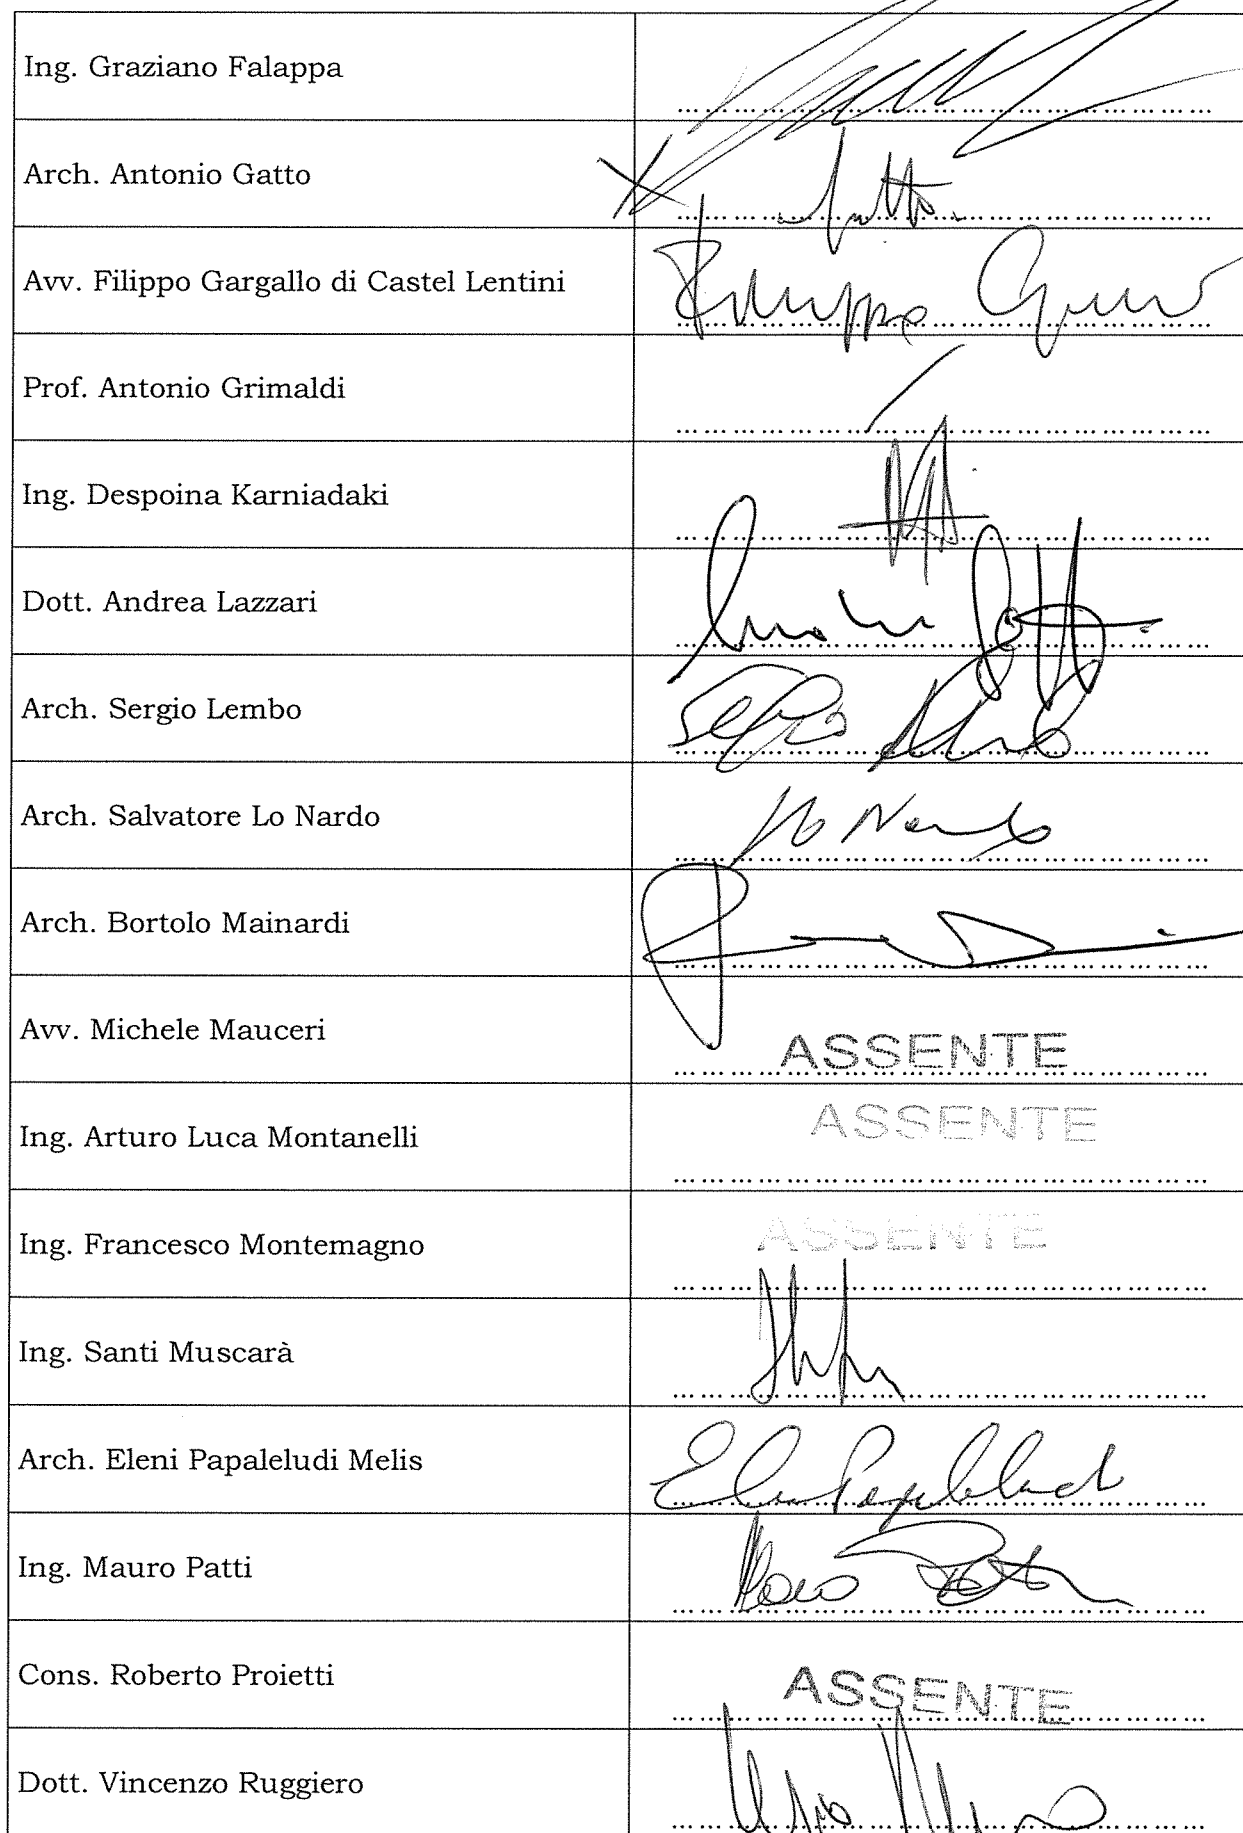 Ing. Graziano Falappa
Arch. Antonio Gatto
Gatto
Avv. Filippo Gargallo di Castel Lentini
Filippo
Prof. Antonio Grimaldi
Ing. Despoina Karniadaki
Dott. Andrea Lazzari
Arch. Sergio Lembo
Sergio Lembo
Arch. Salvatore Lo Nardo
Lo Nardo
Arch. Bortolo Mainardi
Avv. Michele Mauceri
ASSENTE
Ing. Arturo Luca Montanelli
ASSENTE
Ing. Francesco Montemagno
ASSENTE
Ing. Santi Muscarà
Arch. Eleni Papaleludi Melis
Ing. Mauro Patti
Mauro Patti
Cons. Roberto Proietti
ASSENTE
Dott. Vincenzo Ruggiero